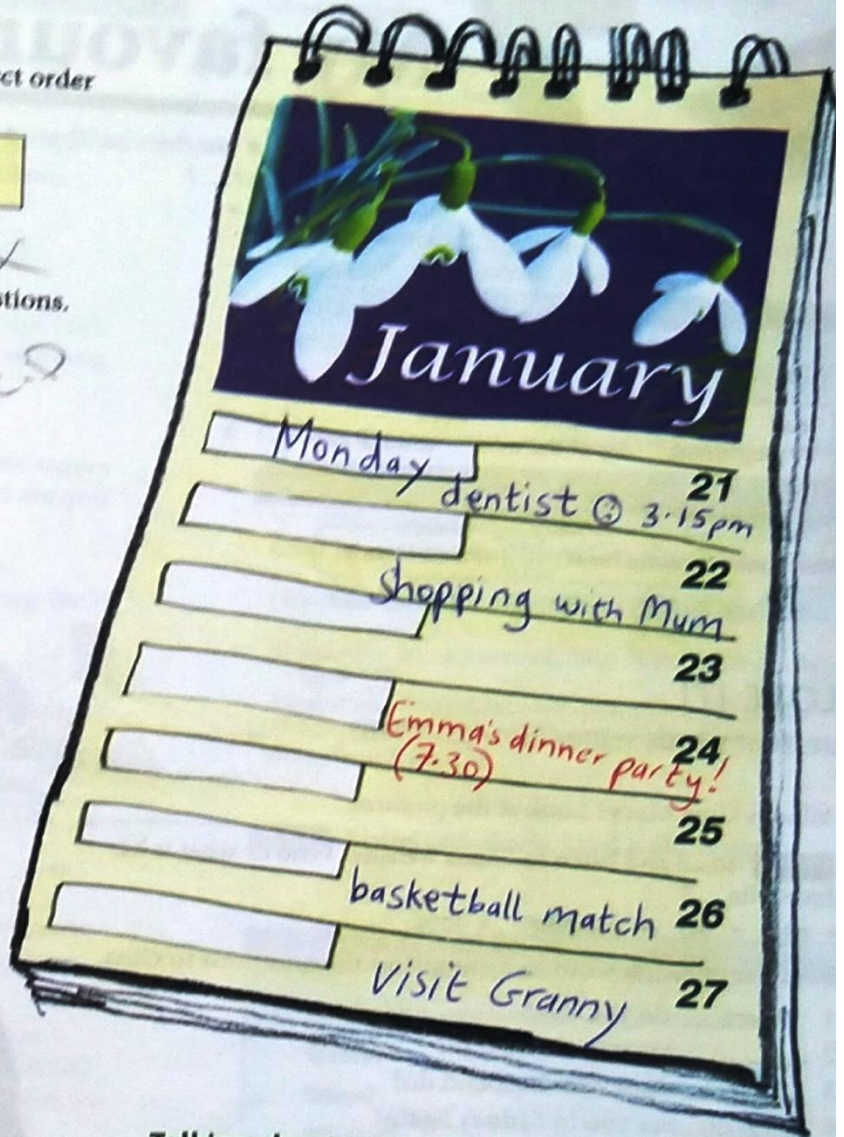 ct order
stions.
January
Monday
21
dentist @ 3.15pm
22
Shopping with Mum
23
24
Emma's dinner party!
(7.30)
25
26
basketball match
27
Visit Granny